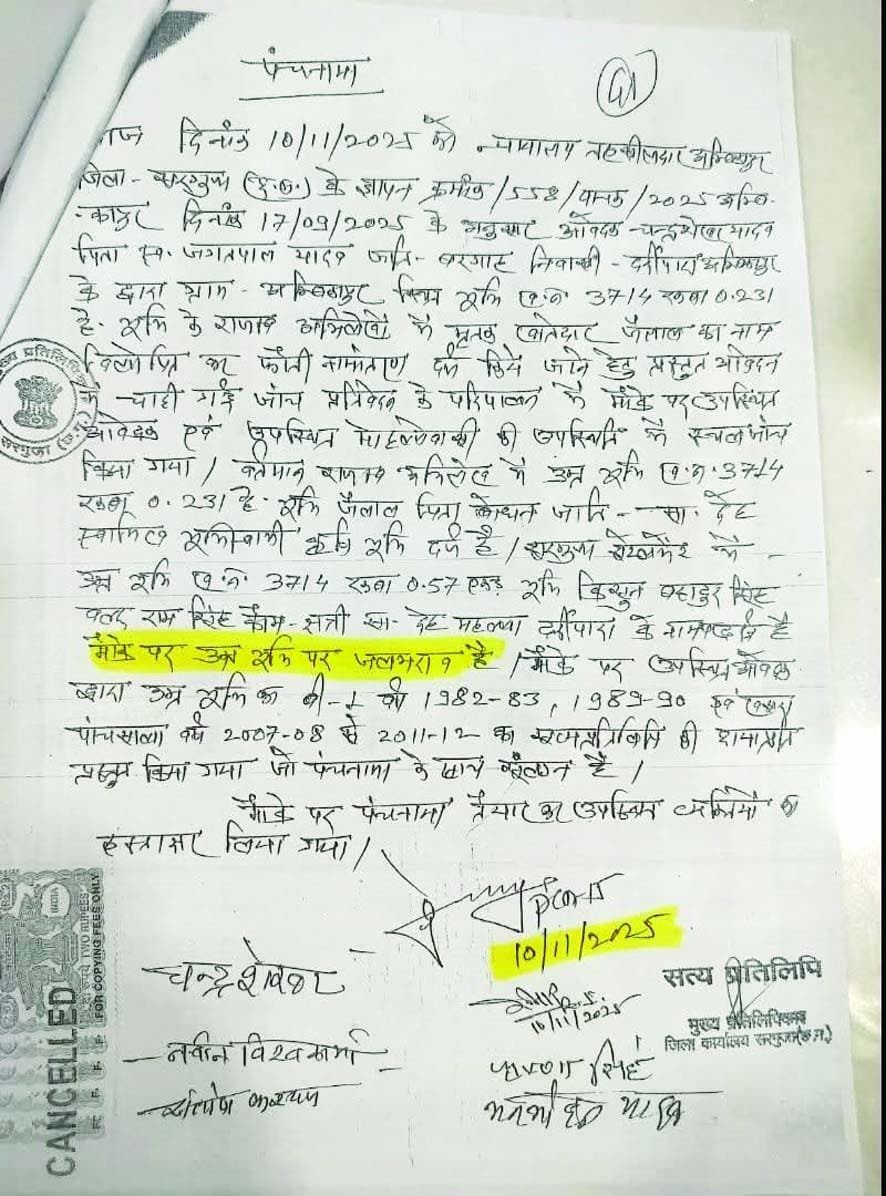 पंचनामा
41
आज दिनांक 10/11/2025 को न्यायालय तहसीलदार अम्बिकापुर
जिला - सरगुजा (छ.ग.) के ज्ञापन क्रमांक /558/वाचक /2025 अम्बि-
-कापुर दिनांक 17/09/2025 के अनुसार आवेदक - चन्द्रशेखर यादव
पिता स्व. जगतपाल यादव जाति - बरगाह निवासी - दर्रीपारा अम्बिकापुर
के द्वारा ग्राम - अम्बिकापुर स्थित भूमि ख.न. 3714 रकबा 0.231
हे. भूमि के राजस्व अभिलेखों में मृतक खातेदार जैलाल का नाम
विलोपित कर फौती नामांतरण दर्ज किये जाने हेतु प्रस्तुत आवेदन
में चाही गई जांच प्रतिवेदन के परिपालन में मौके पर उपस्थित
आवेदक एवं उपस्थित मोहल्लेवासी की उपस्थिति में स्थल जांच
किया गया / वर्तमान राजस्व अभिलेख में उक्त भूमि ख.न. 3714
रकबा 0.231 हे. भूमि जैलाल पिता जाति - सा. देह
स्वामित्व भूमिस्वामी कृषि भूमि दर्ज है / सरगुजा सेटलमेंट में
उक्त भूमि ख.न. 3714 रकबा 0.57 एकड़ भूमि बहादुर सिंह
वल्द राम सिंह कौम - सा. देह महल्ला दर्रीपारा के नाम पर दर्ज है
मौके पर उक्त भूमि पर जलभराव है / मौके पर उपस्थित आवेदक
द्वारा उक्त भूमि का बी-1 वर्ष 1982-83, 1989-90 एवं खसरा
पांचसाला वर्ष 2007-08 से 2011-12 का सत्यप्रतिलिपि की छायाप्रति
प्रस्तुत किया गया जो पंचनामा के साथ संलग्न है /
मौके पर पंचनामा तैयार कर उपस्थित व्यक्तियों का
हस्ताक्षर लिया गया /
10/11/2025
चन्द्रशेखर
10/11/2025
नवीन विश्वकर्मा
संतोष कश्यप
सिंह
यादव
सत्य प्रतिलिपि
मुख्य प्रतिलिपिकार
जिला कार्यालय सरगुजा (छ.ग.)
सत्य प्रतिलिपि
सरगुजा (छ.ग.)
CANCELLED
TWO RUPEES
FOR COPYING FEES ONLY
INDIA